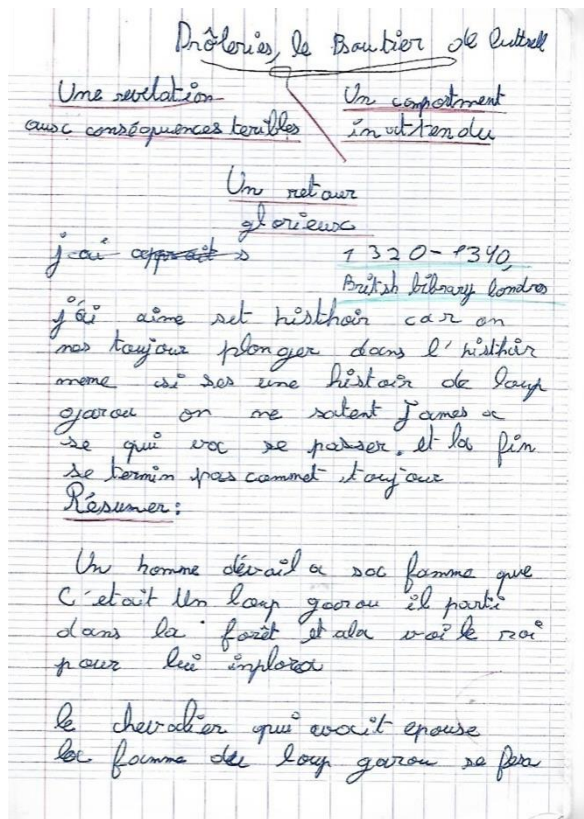 Drôleries, le Psautier de luttrell
Une revelation
aux conséquences teribles
Un comportment
inattendu
Un retour
glorieux
j'ai
1320-1340,
British bibrary londres
j'ai aime set histhoir car on
nes toujour plonger dans l'histhoir
meme si ses une histoir de loup
garou on ne satent James a
se qui va se passer. et la fin
se termin pas commet toujour
Résumer:
Un homme dévoil a sac famme que
C'etait Un loup garou il parti
dans la forêt et ala voi le roi
pour lui inplora
le chevalier qui avait epouse
la famme du loup garou se fesa